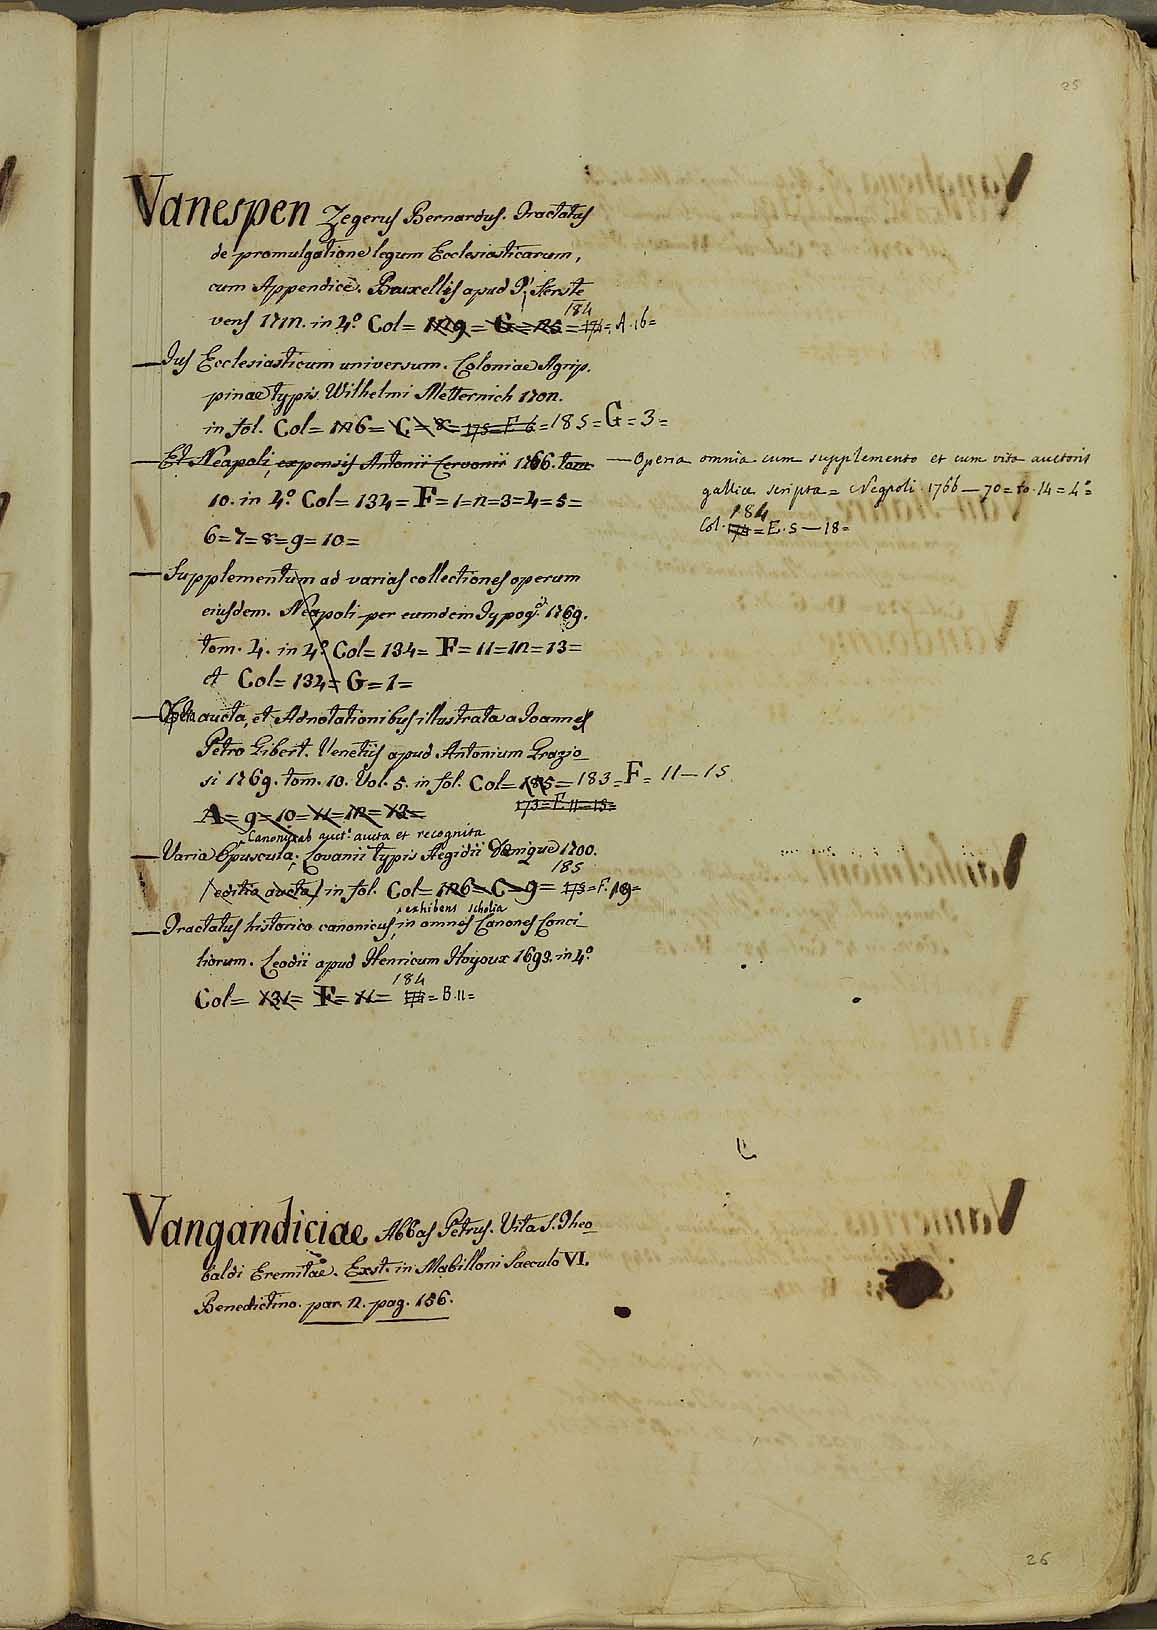 25
Vanespen Zegerus Bernardus. Tractatus
de promulgatione legum Ecclesiasticarum,
cum Appendice. Bruxellis apud P. Serste
vens 1712. in 4.° Col= 129= G= 25= 184 174= A. 16=
— Jus Ecclesiasticum universum. Coloniae Agrip.
pinae typis Wilhelmi Metternich 1702.
in fol. Col= 126= C= 8= 175= F 6= 185= G= 3=
— Et Neapoli expensis Antonii Cervonii 1766. tom.
10. in 4.° Col= 134= F= 1=2=3=4=5=
6=7=8=9=10=
— Operia omnia cum supplemento et cum vita auctoris
gallice scripta= Neapoli. 1766—70= to. 14= 4°=
184
Col. 174= E. 5—18=
— Supplementum ad varias collectiones operum
eiusdem. Neapoli per eumdem Typog.° 1769.
tom. 4. in 4.° Col= 134= F= 11=12=13=
et Col= 134= G= 1=
— aucta, et Adnotationibus illustrata a Joannes
Petro Gibert. Venetiis apud Antonium Grazio_
si 1769. tom. 10. Vol. 5. in fol. Col= 125= 183= F= 11—15
A= 9=10=11=12=13= 173= F. 11=15=
Canonica ab auct. aucta et recognita
— Varia Opuscula. Lovanii typis Aegidii Denique 1700.
185
(editio aucta) in fol. Col= 126= C= 9= 175= F. 19=
exhibens scholia
— Tractatus historico canonicus, in omnes Canones Conci_
liorum. Leodii apud Henricum Hoyoux 1693. in 4.°
184
Col= 131= F= 11= = B. 11=
Vangandiciae Abbas Petrus. Vita S. Theo
baldi Eremitae. Exst. in Mabilloni Saeculo VI.
Benedictino. par. 2. pag. 156.
26